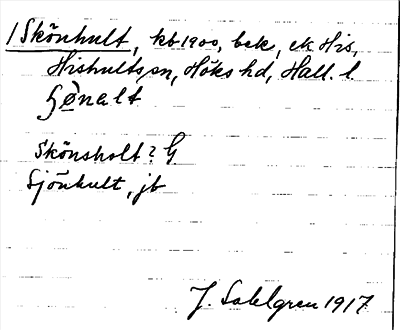 1 Skönhult, kb 1900, bek, ek His,
Hishults sn, Höks hd, Hall. l.
Skönsholt? G
Sjönhult, jb
J. Sahlgren 1917